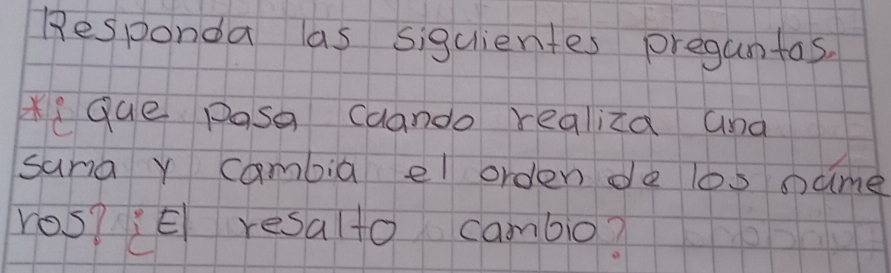 Responda las siguientes preguntas.
*¿ que pasa cuando realiza una
suma y cambia el orden de los núme
ros? ¿El resulto cambio?